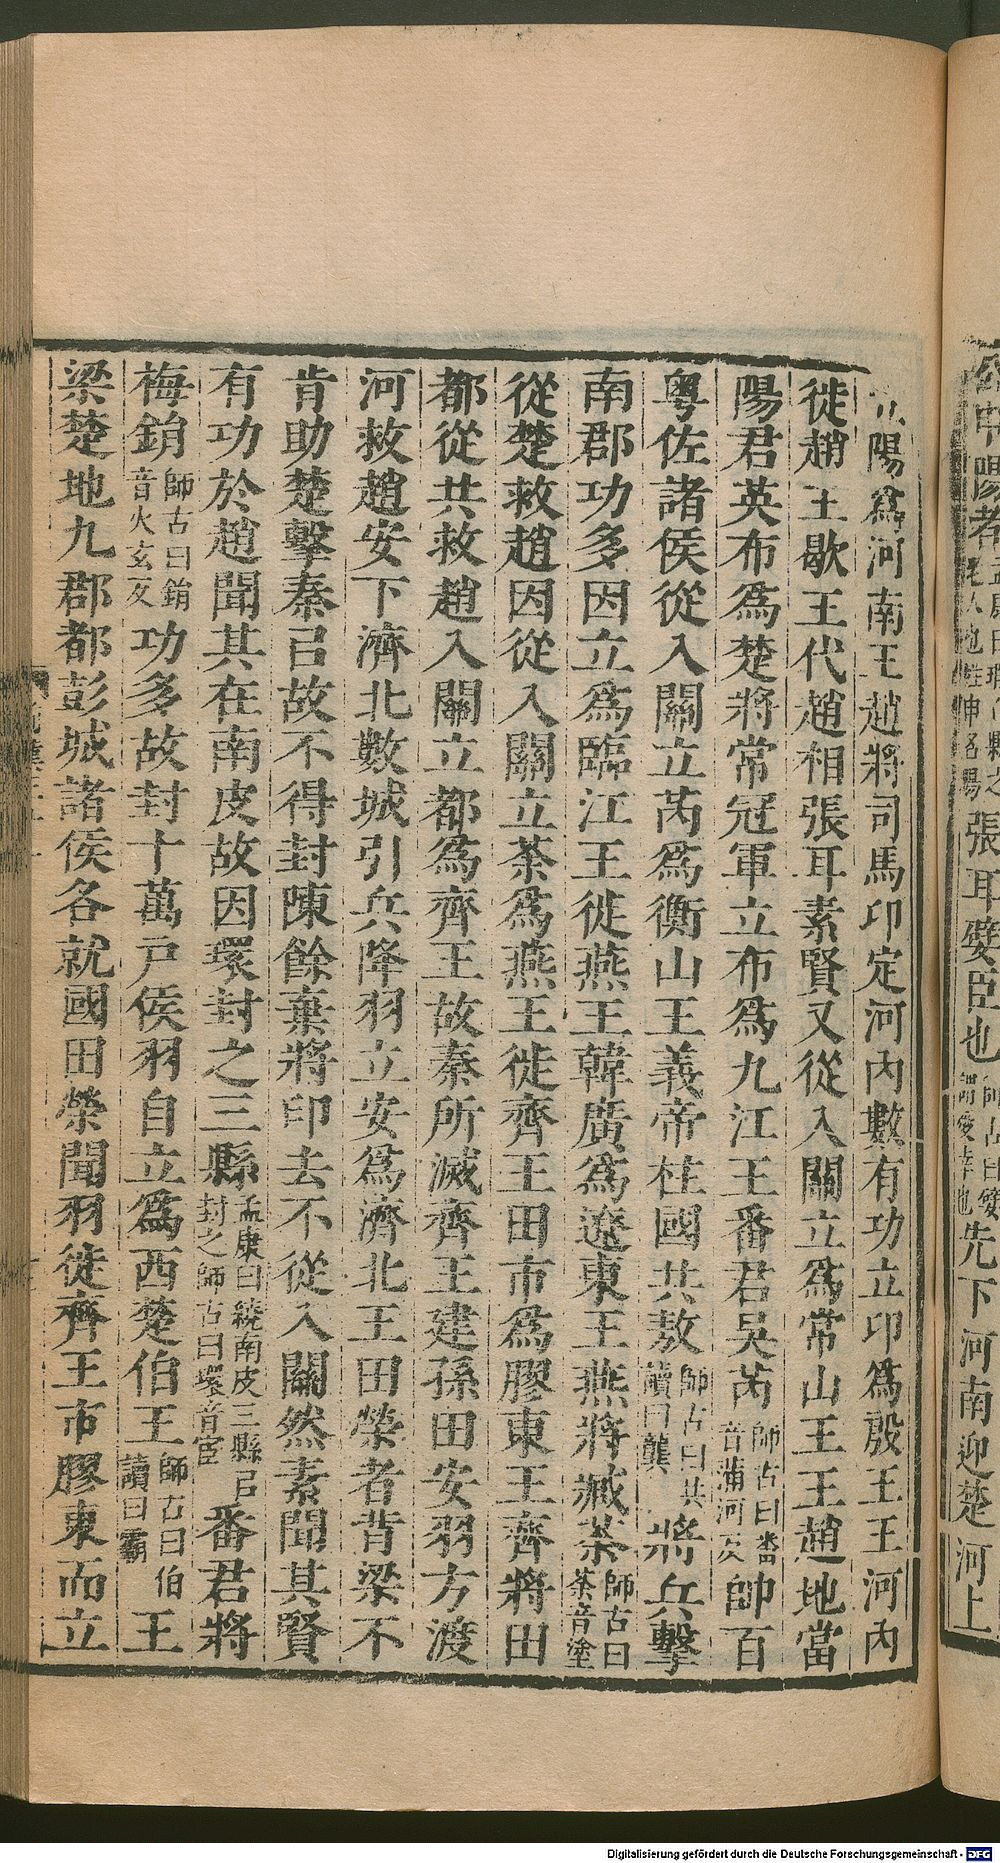 公申陽者張耳嬖臣也先下河南迎楚河上
陽爲河南王趙將司馬卬定河內數有功立卬爲殷王王河內
徙趙王歇王代趙相張耳素賢又從入關立爲常山王王趙地當
陽君英布爲楚將常冠軍立布爲九江王番君吳芮師古曰番音蒲河反帥百
粵佐諸侯從入關立芮爲衡山王義帝柱國共敖師古曰共讀曰龔將兵擊
南郡功多因立爲臨江王徙燕王韓廣爲遼東王燕將臧荼師古曰荼音塗
從楚救趙因從入關立荼爲燕王徙齊王田市爲膠東王齊將田
都從共救趙入關立都爲齊王故秦所滅齊王建孫田安羽方渡
河救趙安下濟北數城引兵降羽立安爲濟北王田榮者背梁不
肯助楚擊秦㠯故不得封陳餘棄將印去不從入關然素聞其賢
有功於趙聞其在南皮故因環封之三縣孟康曰繞南皮三縣㠯封之師古曰環音宦番君將
梅鋗師古曰鋗音火玄反功多故封十萬戶侯羽自立爲西楚伯王師古曰伯讀曰霸王
梁楚地九郡都彭城諸侯各就國田榮聞羽徙齊王市膠東而立
Digitalisierung gefördert durch die Deutsche Forschungsgemeinschaft - DFG